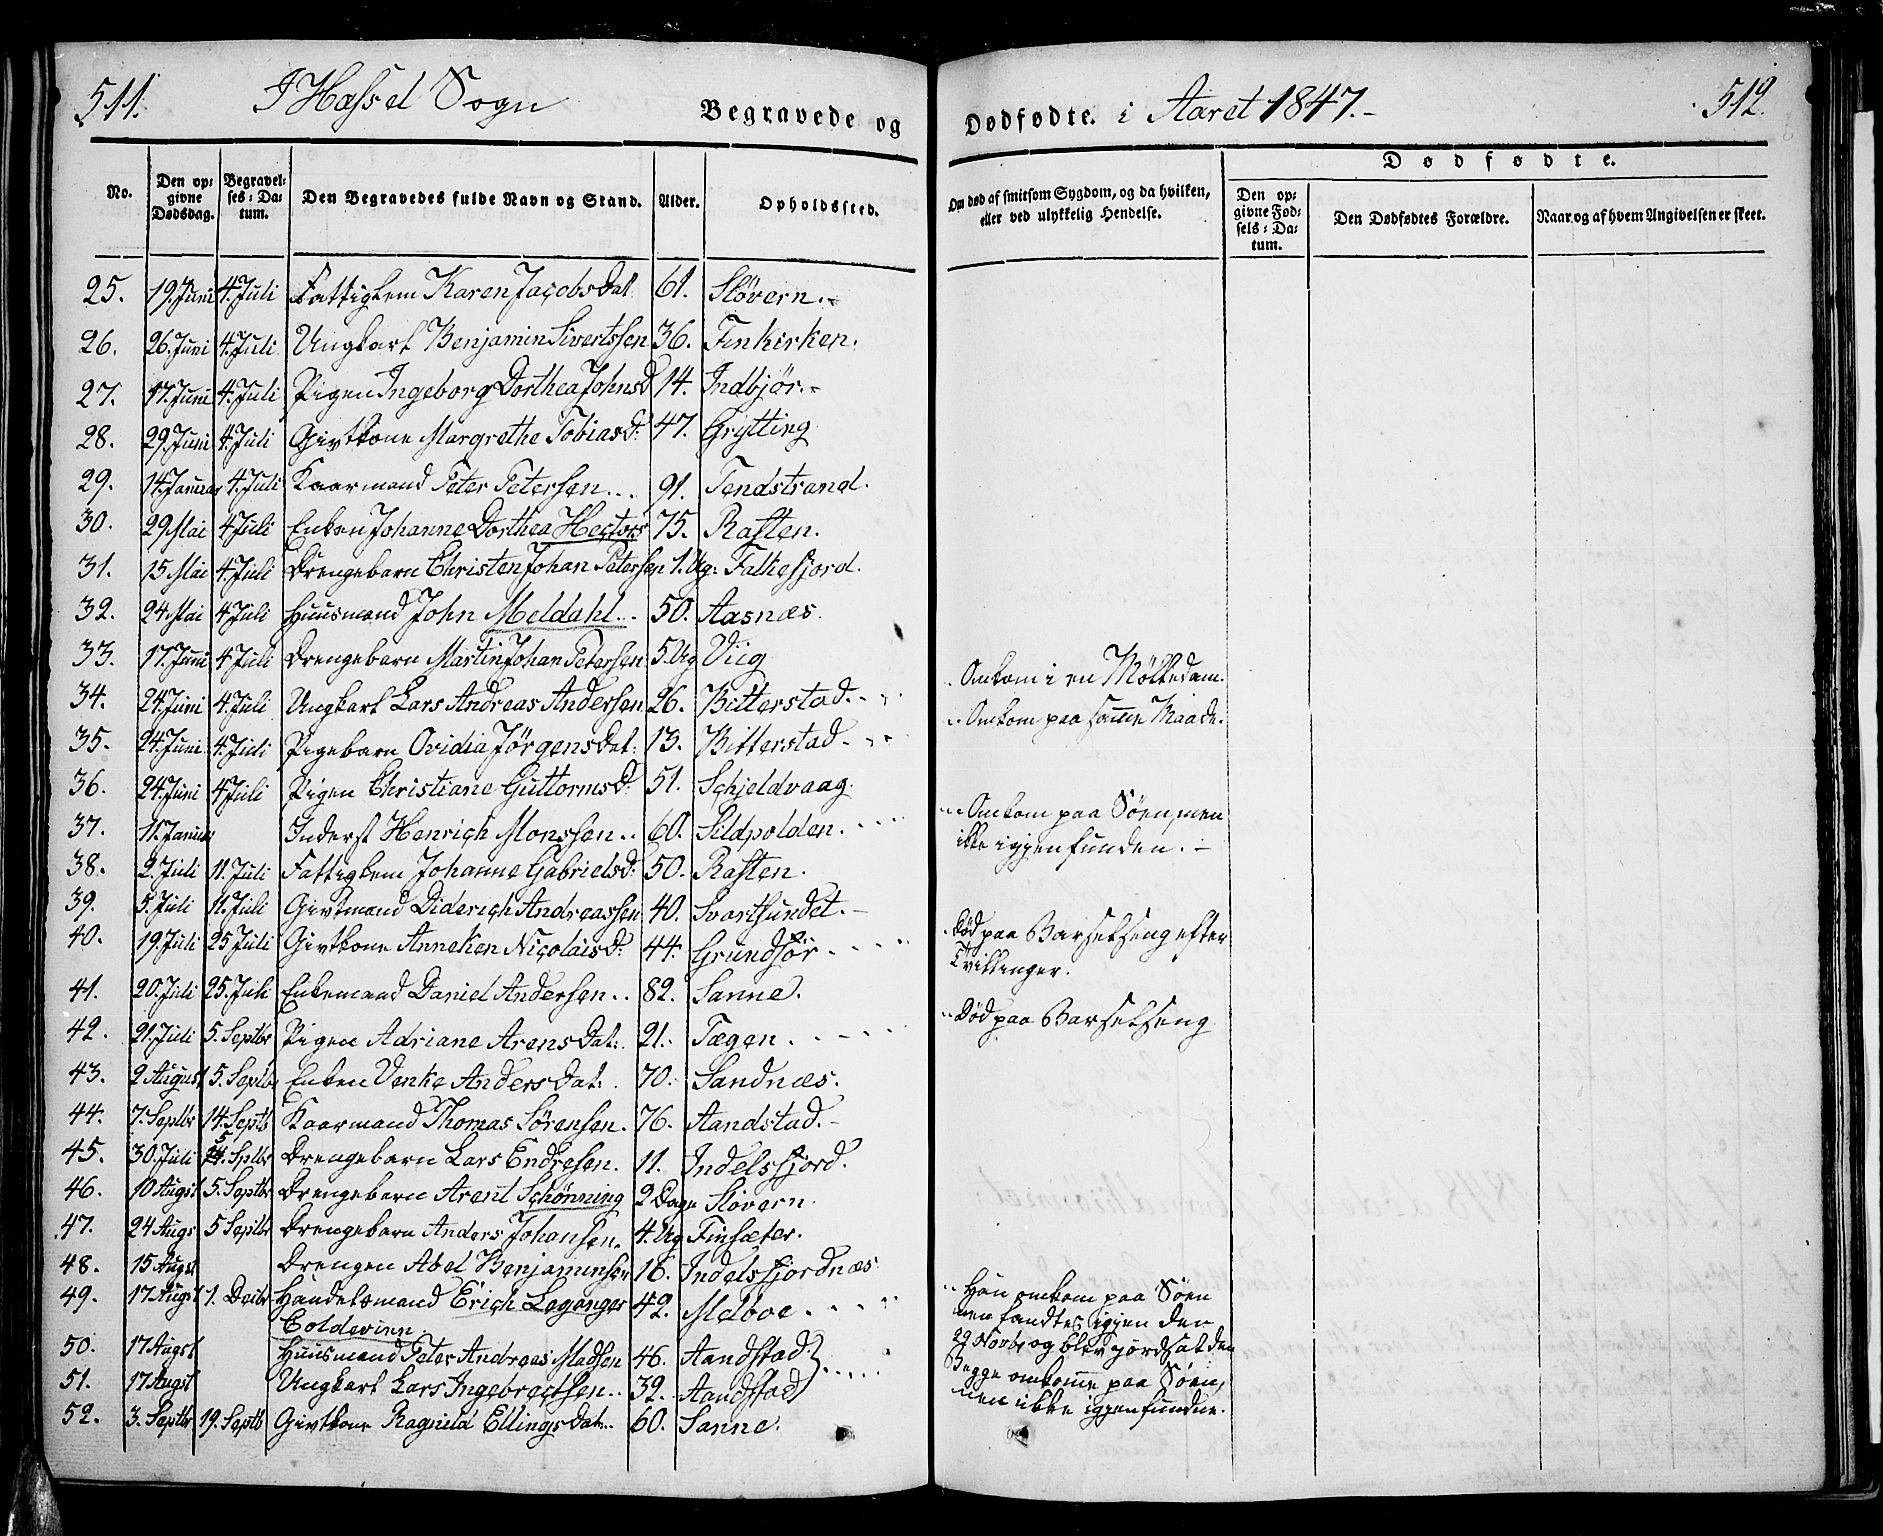 511.
I Hassel Sogn
Begravede og
Dødfødte. i Aaret 1847.-
512.
No.
Den op-
givne
Dødsdag.
Begravel-
ses-Da-
tum.
Den Begravedes fulde Navn og Stand.
Alder.
Opholdssted.
Om død af smitsom Sygdom, og da hvilken,
eller ved ulykkelig Hendelse.
Dødfødte.
Den op-
givne Fød-
sels-Da-
tum.
Den Dødfødtes Forældre.
Naar og af hvem Angivelsen er skeet.
25. 19. Juni 4. Juli Fattiglem Karen Jacobsdat 61. Støvern.-
26. 26. Juni 4. Juli Ungkarl Benjamin Sivertssen 36. Finkirken.
27. 17. Juni 4. Juli Pigen Ingeborg Dorthea Johnsd 14. Indbjør.-
28. 29. Juni 4. Juli Givtkone Margrethe Tobiasd: 47. Grytting
29. 14. Januar 4. Juli Kaarmand Peter Petersen... 91. Tendstrand.
30. 29 Mai 4 Juli Enken Johanne Dorthea Hectors 75. Raften.
31. 15 Mai 4 Juli Drengebarn Christen Johan Petersen 1. Ug: Falkefjord.
32. 24 Mai 4 Juli Huusmand John Meldahl... 50. Aasnæs.
33. 17. Juni 4 Juli Drengebarn Martin Johan Petersen 5. Ug Viig
34. 24 Juni 4. Juli Ungkarl Lars Andreas Andersen 26. Bitterstad. Omkom i en Mølledam.
35. 24. Juni 4. Juli Pigebarn Ovidia Jørgensdat: 13. Bitterstad. Omkom paa samme Maade.
36. 24 Juni 4 Juli Pigen Christiane Guttormsd: 51. Schjeldvaag.
37. 11. Januar Inderst Henrich Monssen.. 60. Sildpolden. Omkom paa Søen, men
ikke igjenfunden.-
38. 2. Juli 11. Juli Fattiglem Johanne Gabrielsd: 50. Raften.
39. 5. Juli 11. Juli Givtmand Diderich Andreassen 40. Svartsundet.-
40. 19. Juli 25 Juli Givtkone Anneken Nicolaisd: 44. Grundfør. Død paa Barselseng efter
Tvillinger.
41. 20. Juli 25. Juli Enkemand Daniel Andersen.. 82. Sanne.
42. 21. Juli 5. Septbr Pigen Adriane Arensdat: 21. Tægen. Død paa Barselseng
43. 2 August 5. Septbr Enken Venke Andersdat: 70. Sandnæs.
44. 7. Septbr 14. Septb Kaarmand Thomas Sørensen. 76. Aandstad.-
45. 30. Juli 5 Septbr Drengebarn Lars Endresen. 11. Indelsfjord.
46. 10 Augst 5. Septbr Drengebarn Arent Schønning 2 Dage Støvern.
47. 24 Augs 5 Septbr Drengebarn Anders Johansen. 4. Ug Finsæter.
48. 15 Augst Drengen Abel Benjaminsen 16. Indelsfjordnæs
49. 17 Augst 1. Decbr Handelsmand Erich Leganger 42. Melboe. Han omkom paa Søen
Coldevien men fandtes igjen den
29 Novbr og blev jordsat den
50. 17 Augst Huusmand Peter Andreas Madsen 46. Aandstad} Begge omkomne paa Søen,
51. 17 Augst Ungkarl Lars Ingebrectsen.. 32. Aandstad} men ikke igjenfundne.
52. 3. Septbr 19. Septb Givtkone Ragnild Ellingsdat. 60. Sanne.